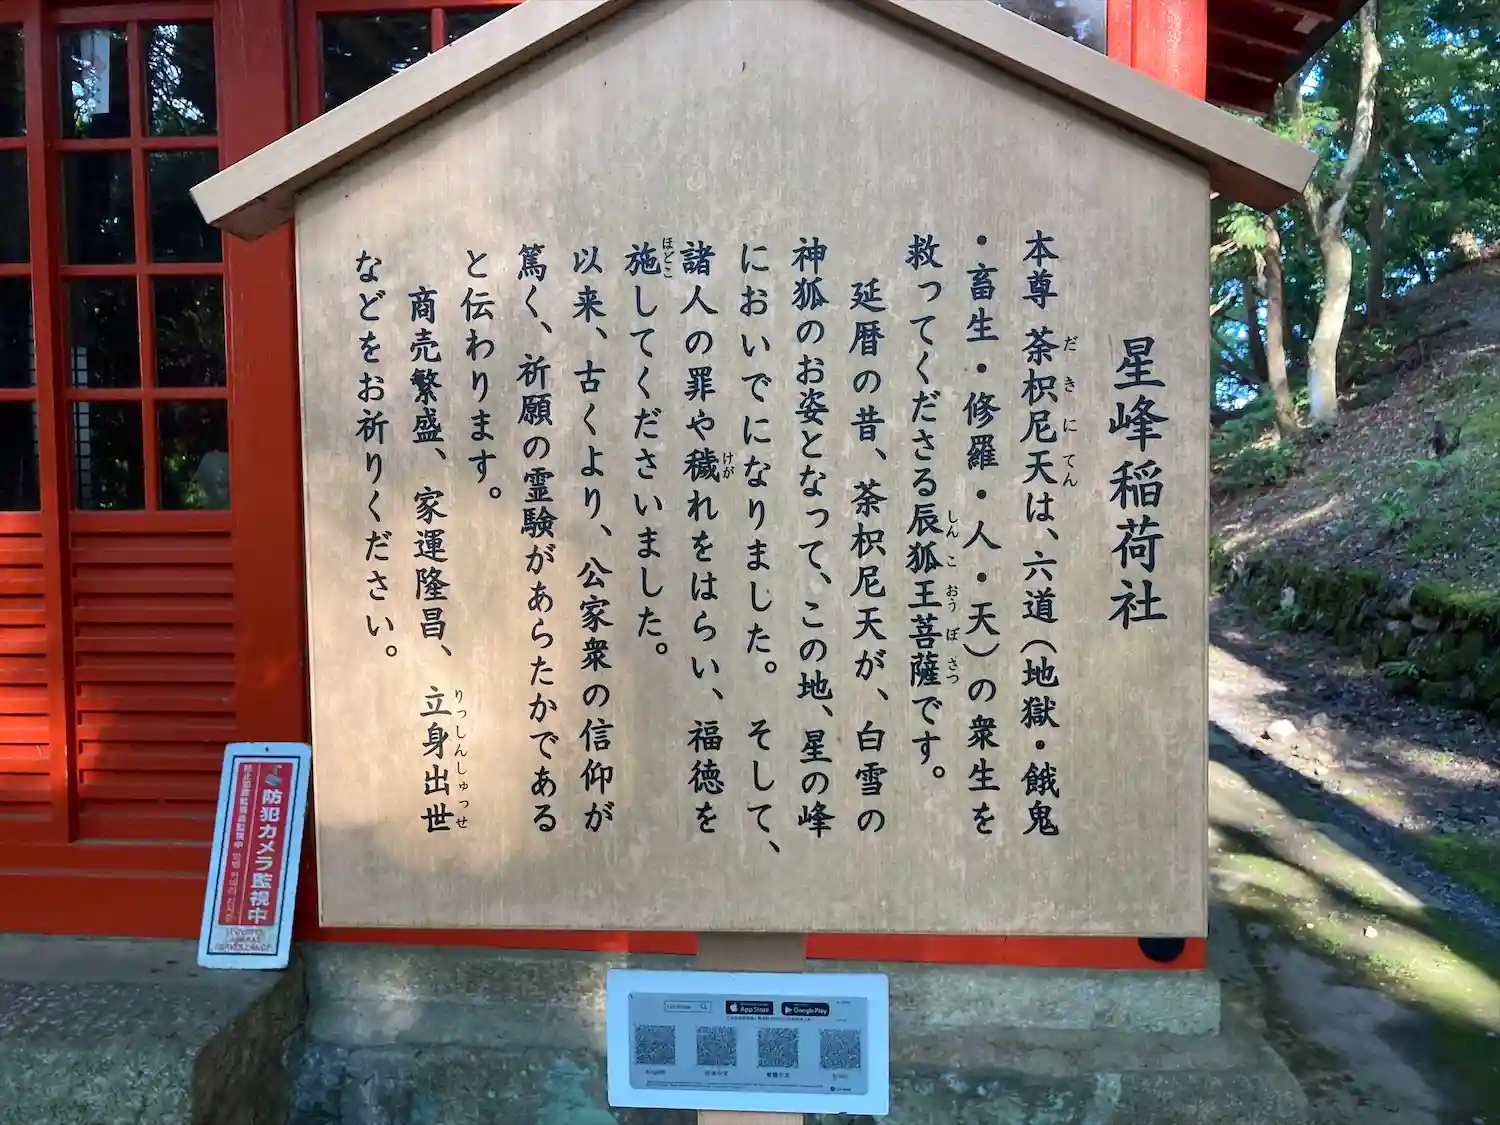 星峰稲荷社
本尊 荼枳尼天は、六道(地獄・餓鬼
だきにてん
・畜生・修羅・人・天)の衆生を
救ってくださる辰狐王菩薩です。
しんこおうぼさつ
延暦の昔、荼枳尼天が、白雪の
神狐のお姿となって、この地、星の峰
においでになりました。 そして、
諸人の罪や穢れをはらい、福徳を
けが
施してくださいました。
ほどこ
以来、古くより、公家衆の信仰が
篤く、祈願の霊験があらたかである
と伝わります。
商売繁盛、家運隆昌、立身出世
りっしんしゅっせ
などをお祈りください。
防犯カメラ監視中
App Store
Google Play
English